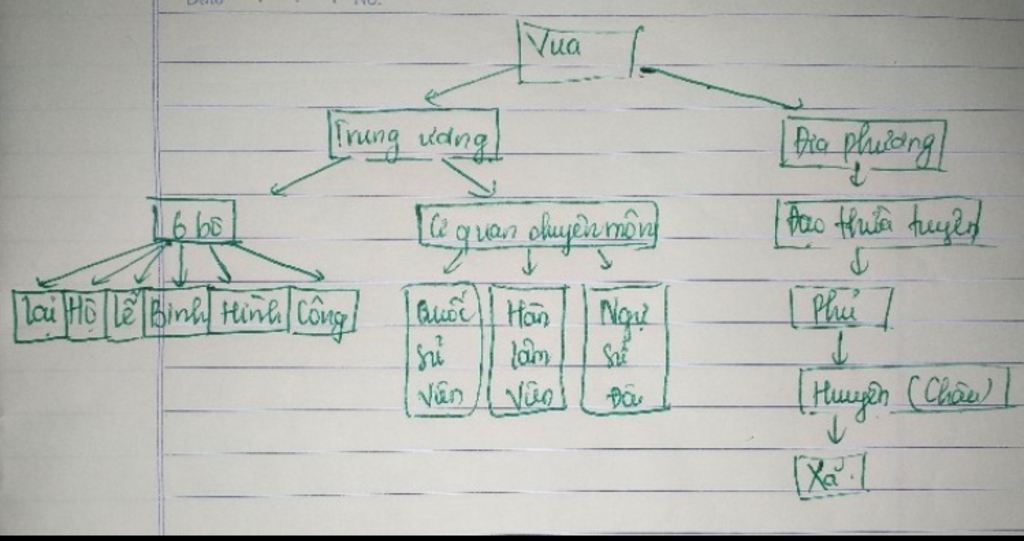 Vua
Trung ương
Địa phương
6 bộ
Cơ quan chuyên môn
Đạo thừa tuyên
Lại Hộ Lễ Binh Hình Công
Quốc
Sử
Viện
Hàn
lâm
Viện
Ngự
Sử
Đài
Phủ
Huyện (Châu)
Xã